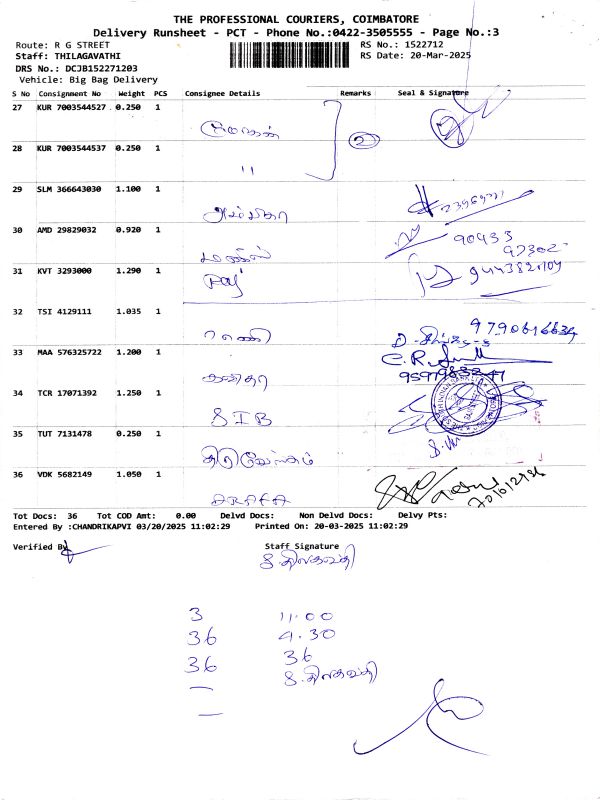 THE PROFESSIONAL COURIERS, COIMBATORE
Delivery Runsheet - PCT - Phone No.:0422-3505555 - Page No.:3
Route: R G STREET RS No.: 1522712
Staff: THILAGAVATHI RS Date: 20-Mar-2025
DRS No.: DCJB152271203
Vehicle: Big Bag Delivery
S No Consignment No Weight PCS Consignee Details Remarks Seal & Signature
27 KUR 7003544527 0.250 1
2
28 KUR 7003544537 0.250 1
"
29 SLM 366643030 1.100 1
30 AMD 29829032 0.920 1
90433
97302
31 KVT 3293000 1.290 1
Raj
32 TSI 4129111 1.035 1
ராணி
33 MAA 576325722 1.200 1
கவிதா
34 TCR 17071392 1.250 1
SIB
35 TUT 7131478 0.250 1
36 VDK 5682149 1.050 1
Tot Docs: 36 Tot COD Amt: 0.00 Delvd Docs: Non Delvd Docs: Delvy Pts:
Entered By :CHANDRIKAPVI 03/20/2025 11:02:29 Printed On: 20-03-2025 11:02:29
Verified By Staff Signature
S.திலகவதி
3 11.00
36 4.30
36 36
S.திலகவதி